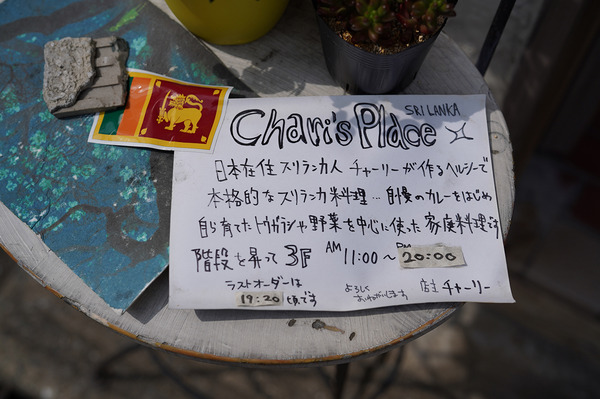 Chari's Place SRI LANKA
日本在住スリランカ人 チャーリーが作るヘルシーで
本格的なスリランカ料理…自慢のカレーをはじめ
自ら育てたトウガラシや野菜を中心に使った家庭料理です
階段を昇って3F AM 11:00～PM 20:00
ラストオーダーは
19:20 頃です
よろしく
おねがいします
店主 チャーリー